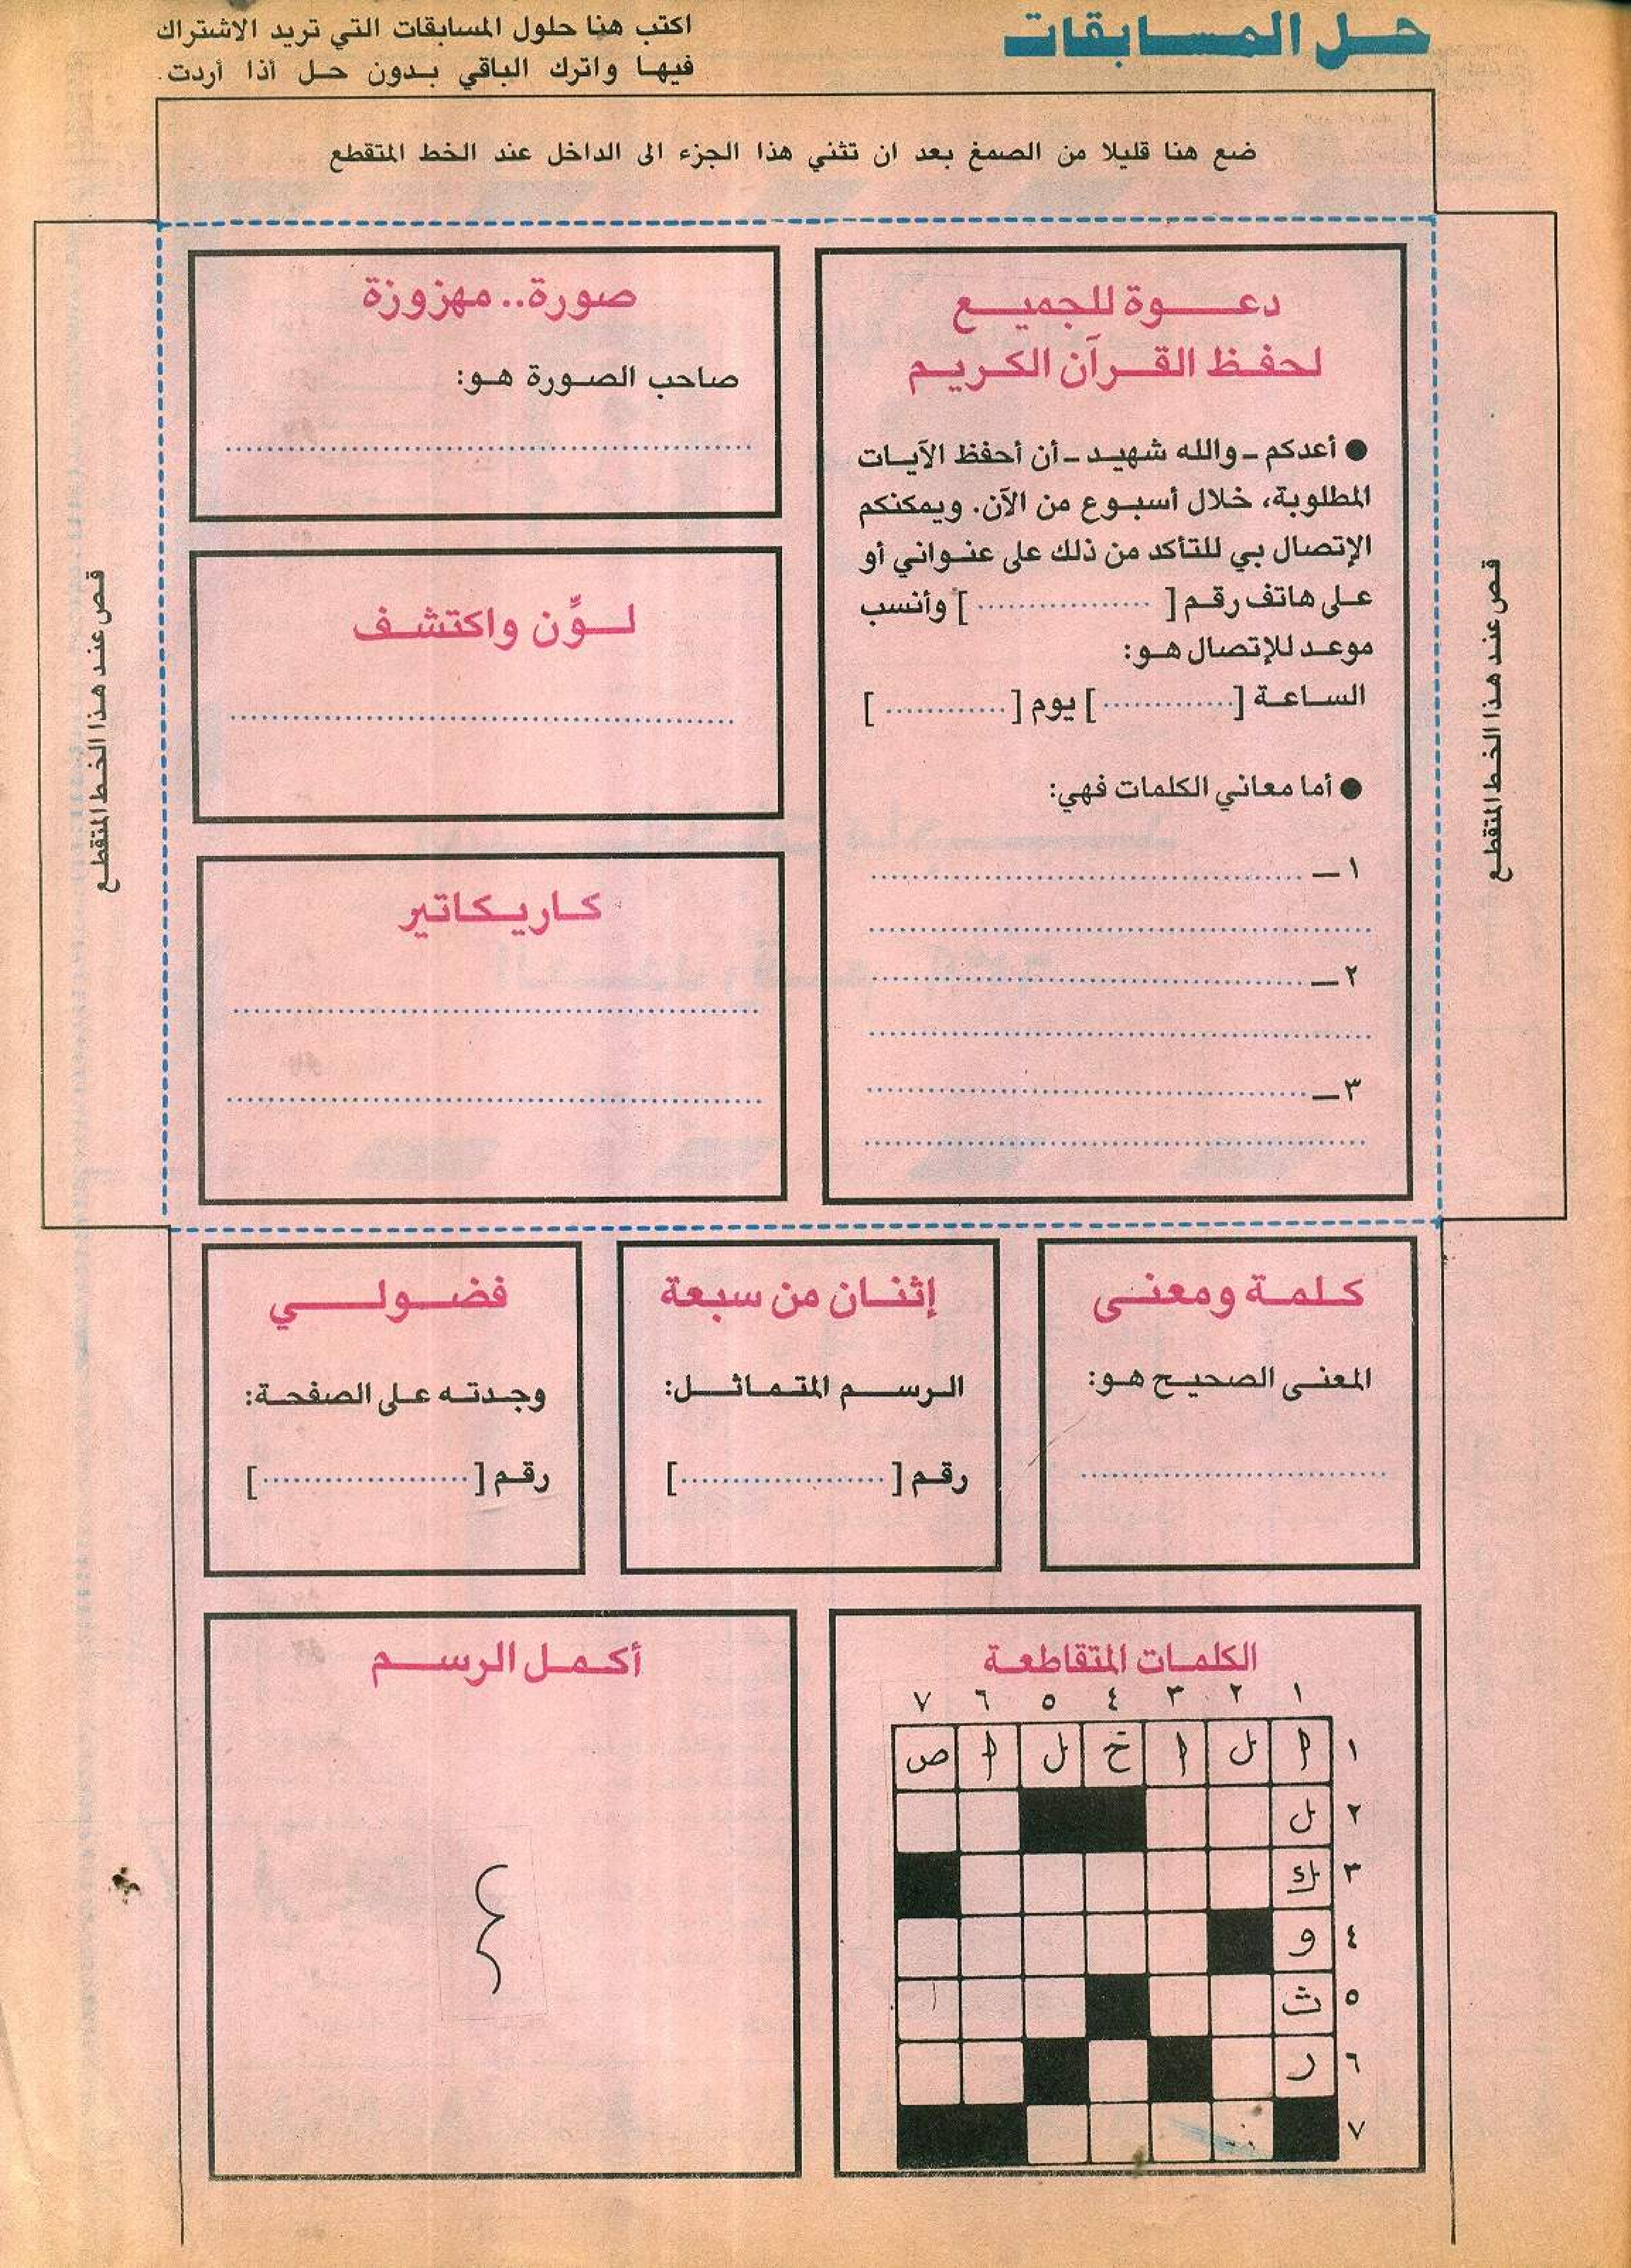 حل المسابقات
اكتب هنا حلول المسابقات التي تريد الاشتراك
فيها واترك الباقي بدون حل أذا أردت.
ضع هنا قليلا من الصمغ بعد ان تثني هذا الجزء الى الداخل عند الخط المتقطع
قص عند هذا الخط المتقطع
دعوة للجميع
لحفظ القرآن الكريم
● أعدكم - والله شهيد - أن أحفظ الآيات
المطلوبة، خلال أسبوع من الآن. ويمكنكم
الإتصال بي للتأكد من ذلك على عنواني أو
على هاتف رقم [ .................. ] وأنسب
موعد للإتصال هو:
الساعة [ ............. ] يوم [ ............ ]
● أما معاني الكلمات فهي:
١ - ........................................
٢ - ........................................
٣ - ........................................
صورة.. مهزوزة
صاحب الصورة هو:
لوِّن واكتشف
كاريكاتير
قص عند هذا الخط المتقطع
كلمة ومعنى
المعنى الصحيح هو:
إثنان من سبعة
الرسم المتماثل:
رقم [ .................... ]
فضولي
وجدته على الصفحة:
رقم [ .................... ]
الكلمات المتقاطعة
١ ٢ ٣ ٤ ٥ ٦ ٧
١ ا ل ا خ ل ا ص
٢ ل
٣ ك
٤ و
٥ ث
٦ ر
٧
أكمل الرسم